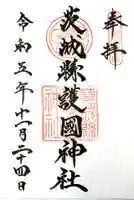 奉拝
茨城縣護國神社
令和五年十一月二十四日